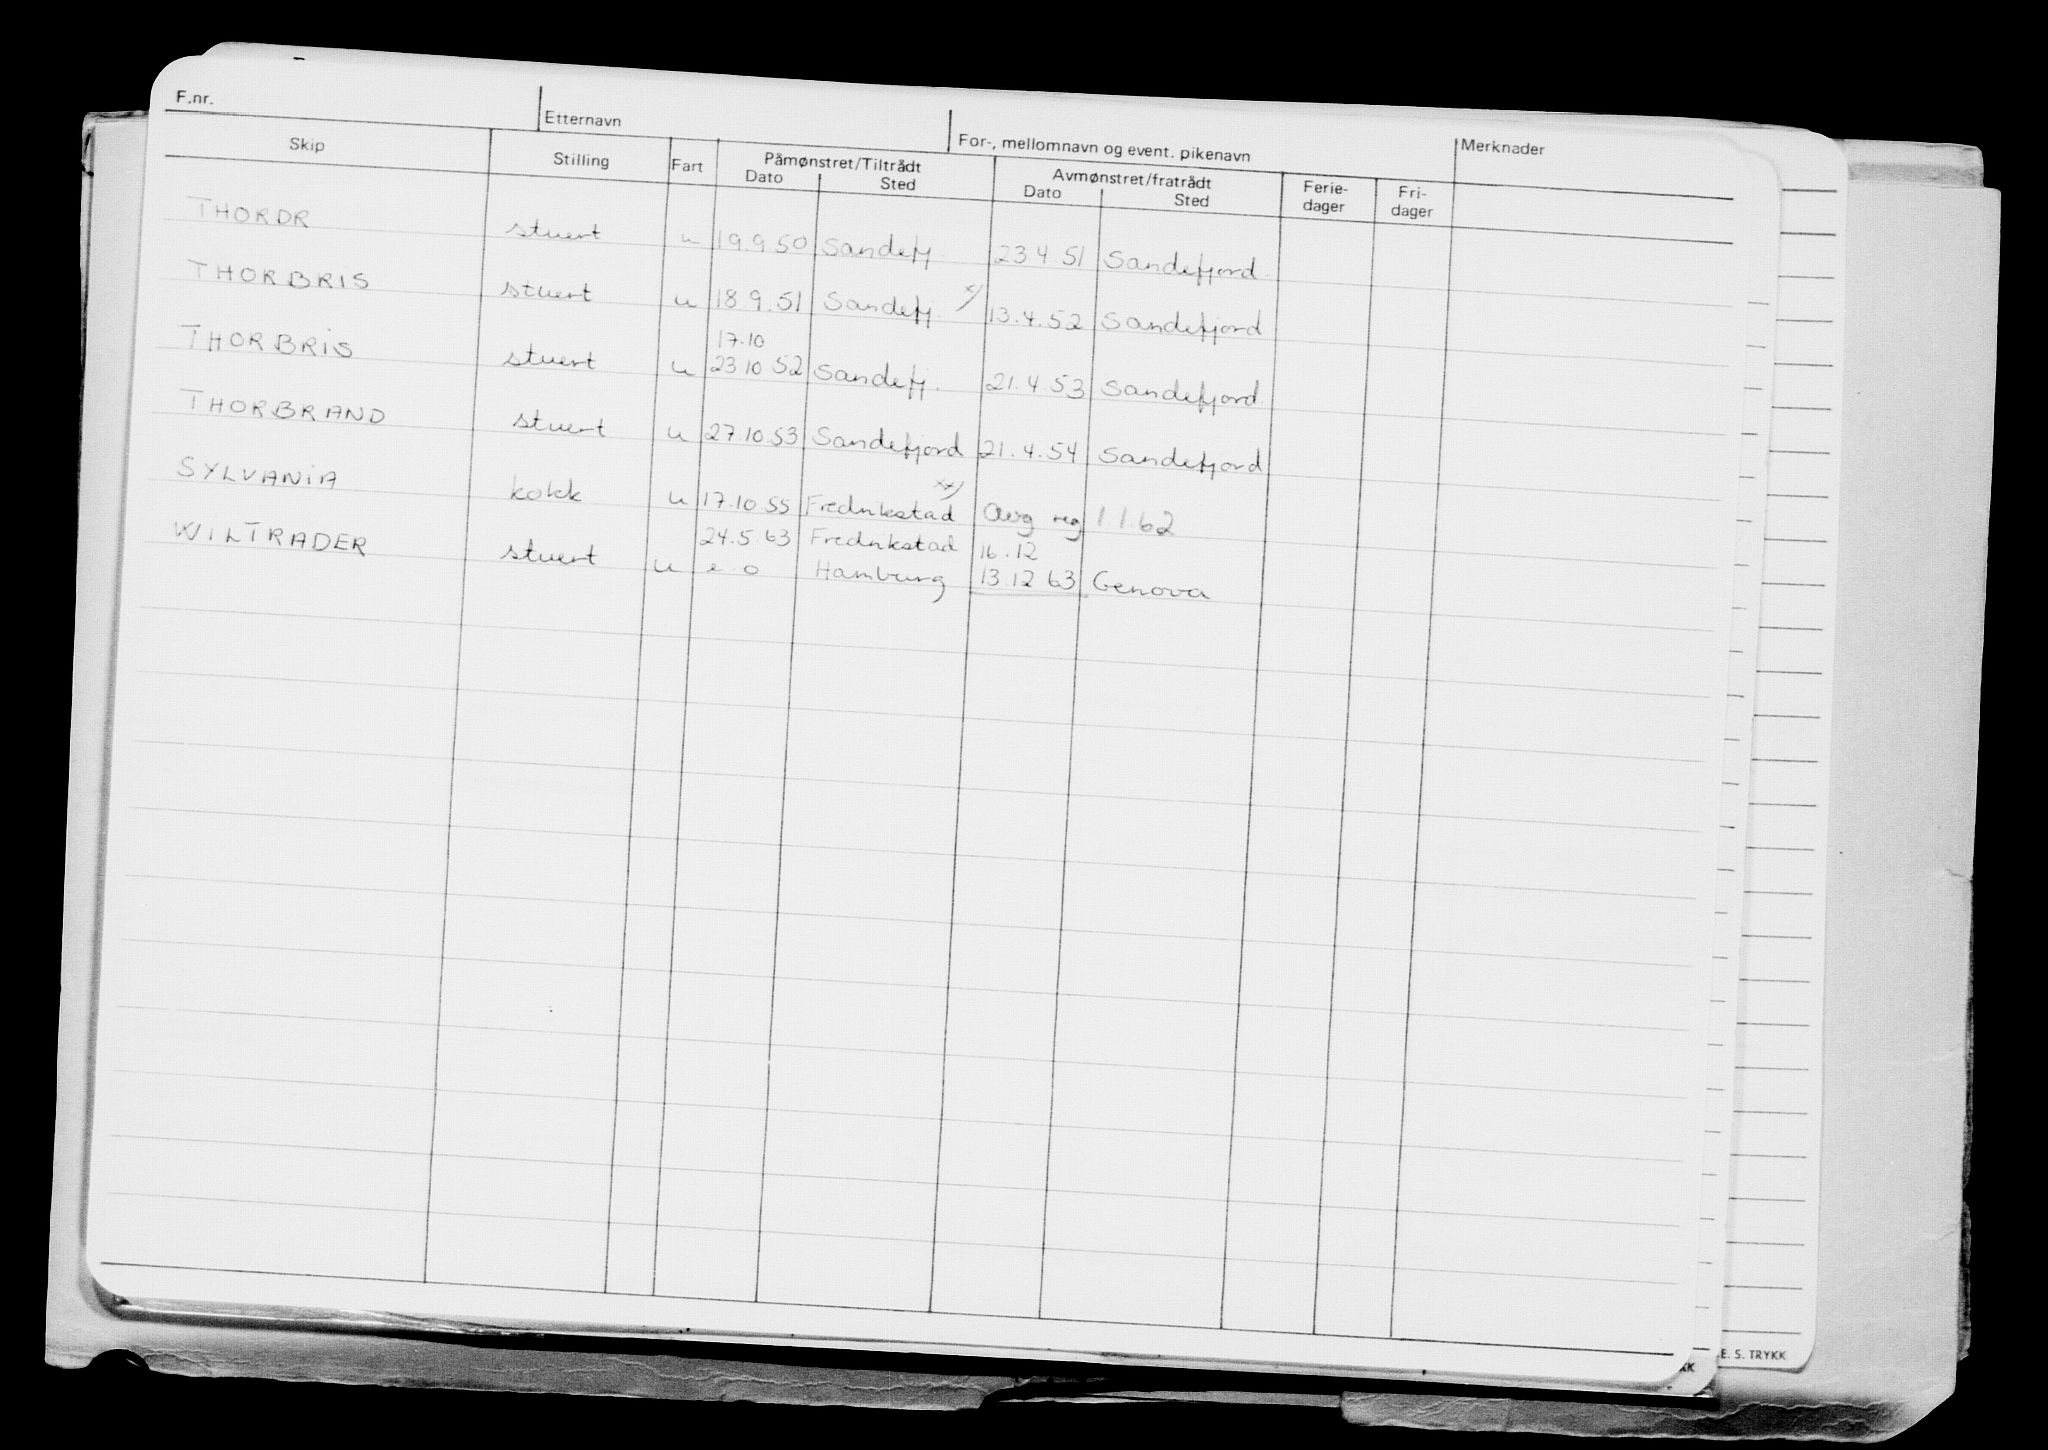 F.nr. Etternavn For-, mellomnavn og event. pikenavn Merknader
Skip Stilling Fart Påmønstret/Tiltrådt Avmønstret/fratrådt Ferie- Fri-
Dato Sted Dato Sted dager dager
THORDR stuert u 19.9.50 Sandefj. 23.4.51 Sandefjord.
THORBRIS stuert u 18.9.51 Sandefj. x) 13.4.52 Sandefjord
17.10
THORBRIS stuert u 23.10.52 Sandefj. 21.4.53 Sandefjord.
THORBRAND stuert u 27.10.53 Sandefjord 21.4.54 Sandefjord
xx)
SYLVANIA kokk u 17.10.55 Fredrikstad avg reg 1.1.62
24.5.63 Fredrikstad 16.12
WILTRADER stuert u e.o Hamburg 13.12.63 Genova
E. S. TRYKK
KK